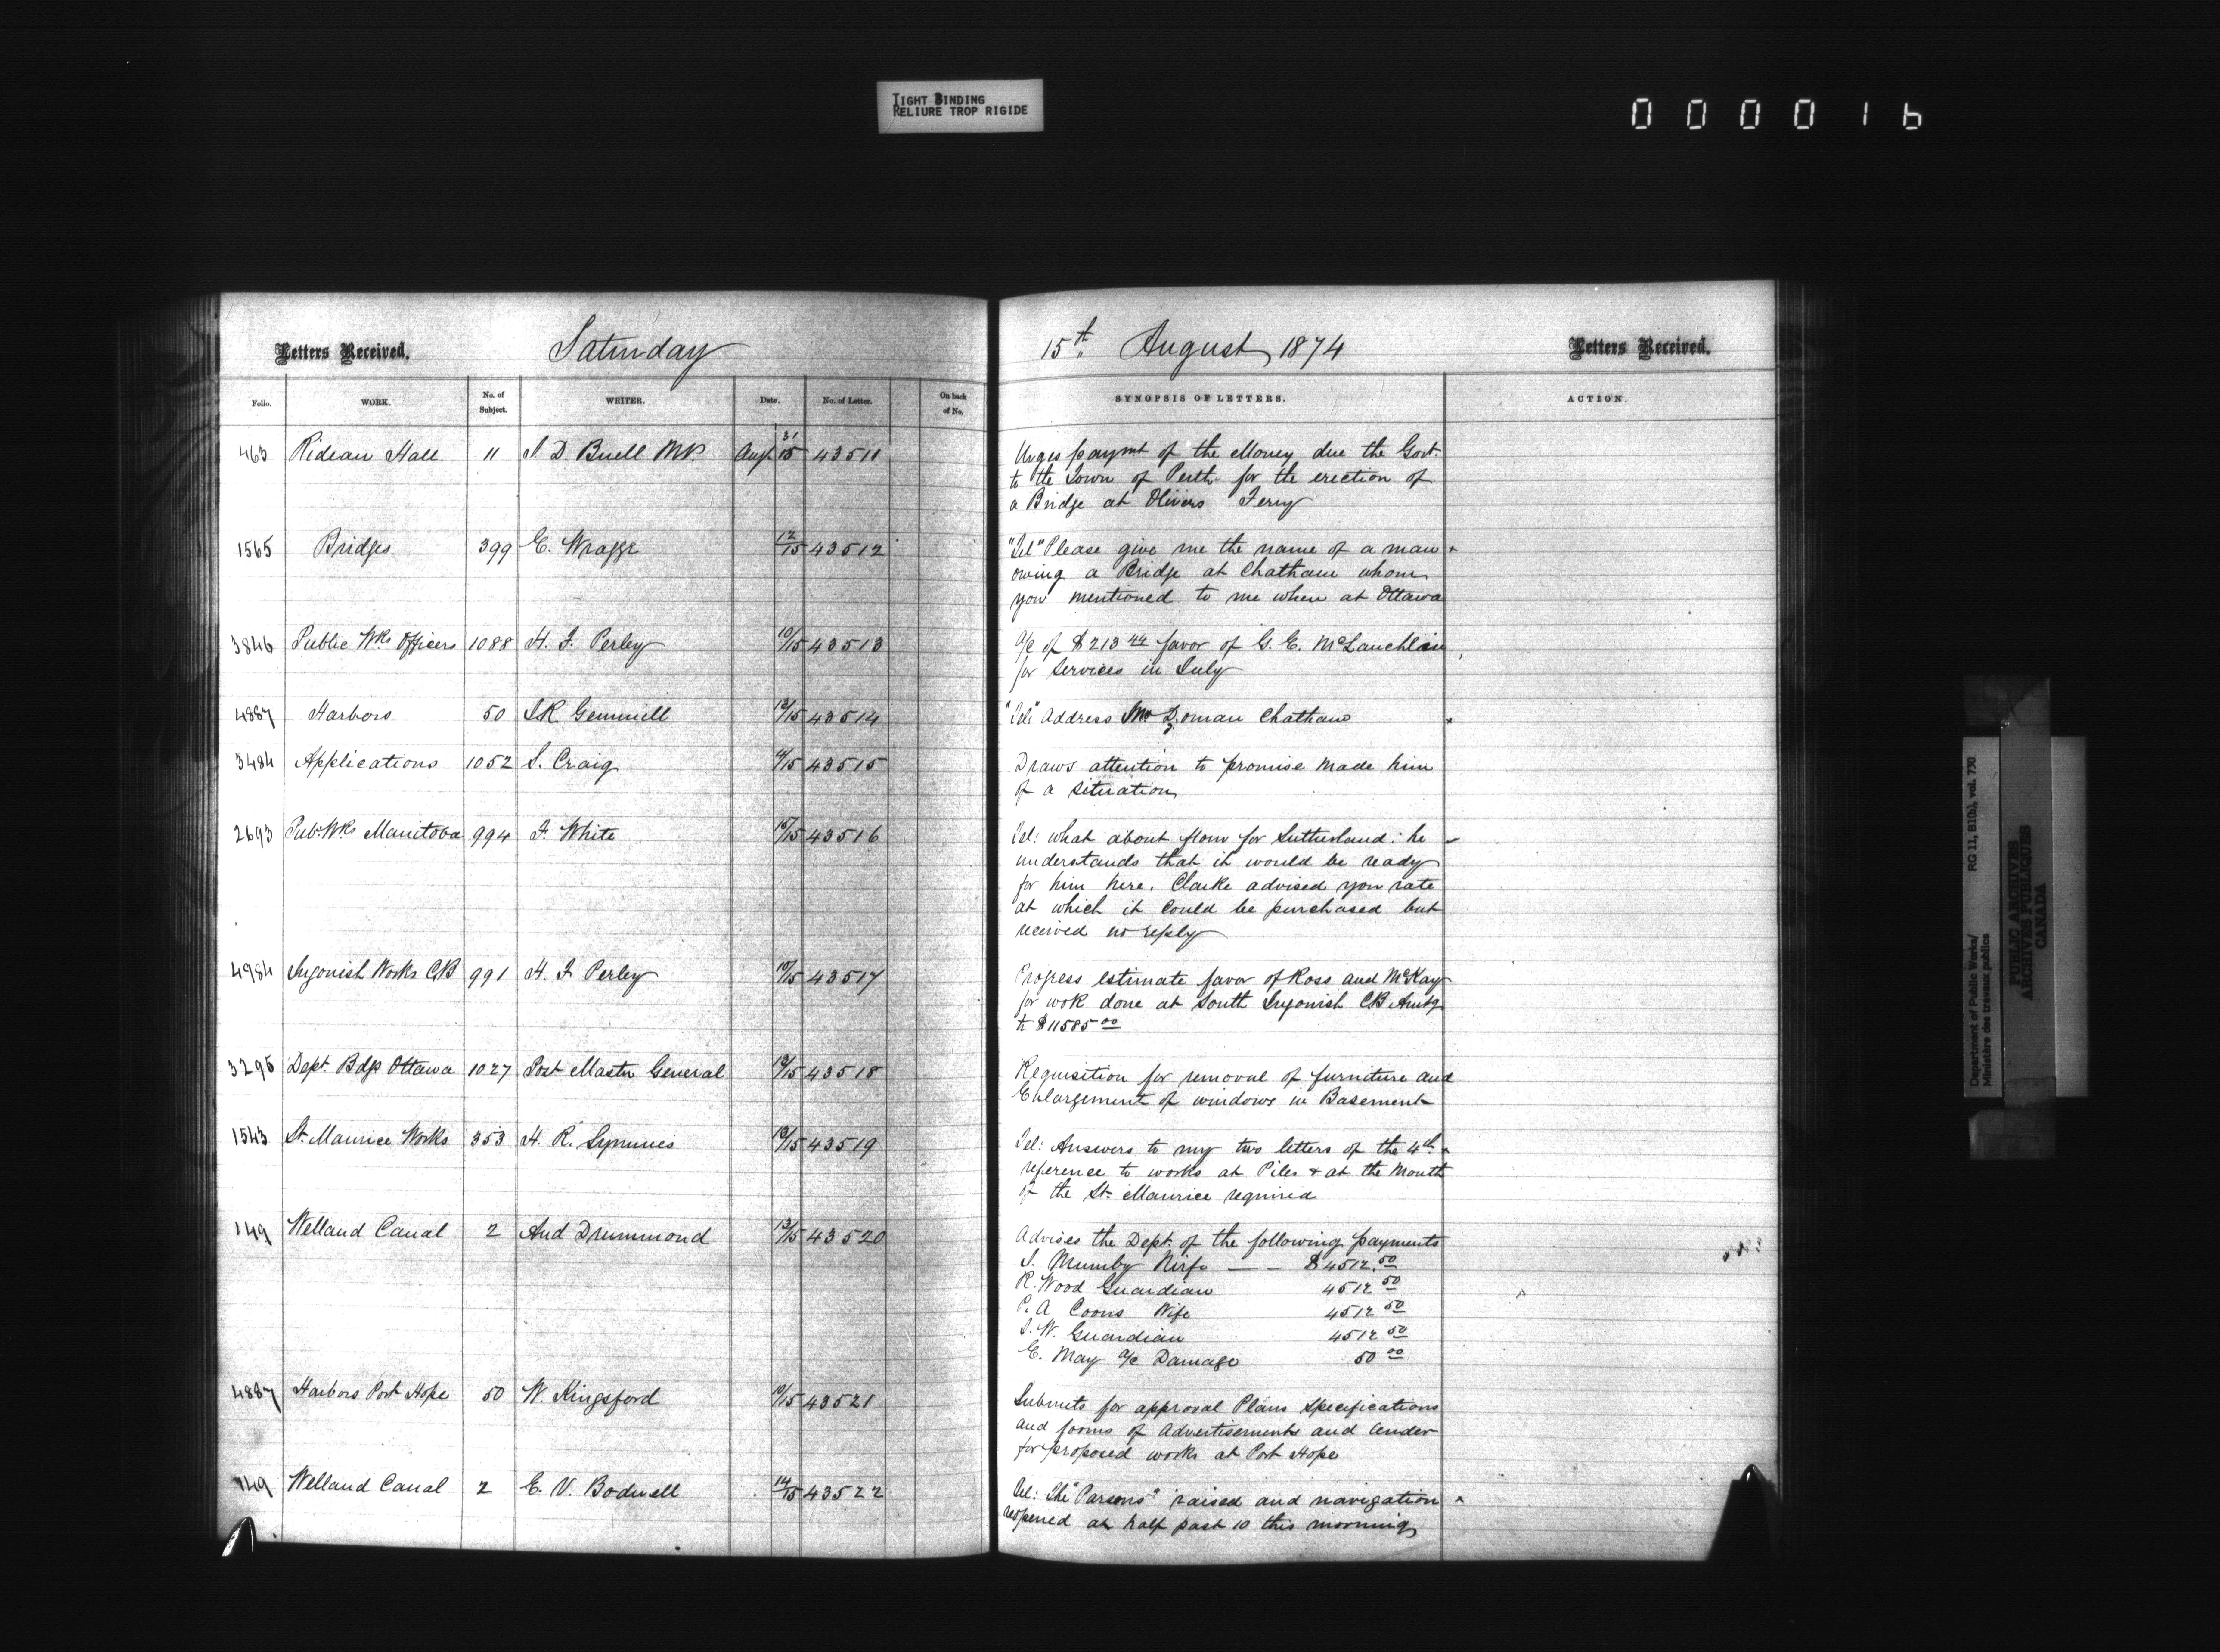 TIGHT BINDING
RELIURE TROP RIGIDE
000016
Letters Received.
Saturday
15th August, 1874
Letters Received.
Folio. WORK. No. of Subject. WRITER. Date. No. of Letter. On back of No.
SYNOPSIS OF LETTERS. ACTION.
463 Rideau Hall 11 J. D. Buell MP. Aug. 31/15 43511
Urges paymt of the Money due the Govt.
to the Town of Perth for the erection of
a Bridge at Olivers Ferry
1565 Bridges 399 E. Wragge 12/15 43512
"Tel" Please give me the name of a man
owing a Bridge at Chatham whom
you mentioned to me when at Ottawa
3846 Public Wks Officers 1088 H. F. Perley 10/15 43513
a/c of $213 44 favor of G. E. McLauchlin
for Services in July
4887 Harbors 50 J.R. Gemmill 13/15 43514
"Tel" Address Chatham
3484 Applications 1052 J. Craig 4/15 43515
Draws attention to promise made him
of a situation
2693 Pub. Wks Manitoba 994 F. White 15/15 43516
Tel: what about flour for Sutherland: he
understands that it would be ready
for him here. Clarke advised you rate
at which it could be purchased but
received no reply
4984 Ingonish Works CB 991 H. F. Perley 10/15 43517
Progress estimate favor of Ross and McKay
for work done at South Ingonish CB Amtg
to $11585 00
3295 Dept. Bdgs Ottawa 1027 Post Master General 13/15 43518
Requisition for removal of furniture and
Enlargement of windows in Basement
1543 St. Maurice Works 353 H. R. Symmes 13/15 43519
Tel: Answers to my two letters of the 4th
reference to works at Piles & at the Mouth
of the St. Maurice required
149 Welland Canal 2 And Drummond 13/15 43520
Advises the Dept. of the following payments
J. Mumby Wife — — $4512.50
R. Wood Guardian 4512 50
P. A Coons Wife 4512 50
J. W. Guardian 4512 50
E. May a/c Damage 50 00
4887 Harbors Port Hope 50 W. Kingsford 10/15 43521
Submits for approval Plans specifications
and forms of Advertisement and tender
for proposed works at Port Hope
149 Welland Canal 2 E. V. Bodwell 14/15 43522
Tel: The "Parsons" raised and navigation
reopened at half past 10 this morning
Department of Public Works/
Ministère des travaux publics
RG 11, B1(b), vol. 730
PUBLIC ARCHIVES
ARCHIVES PUBLIQUES
CANADA